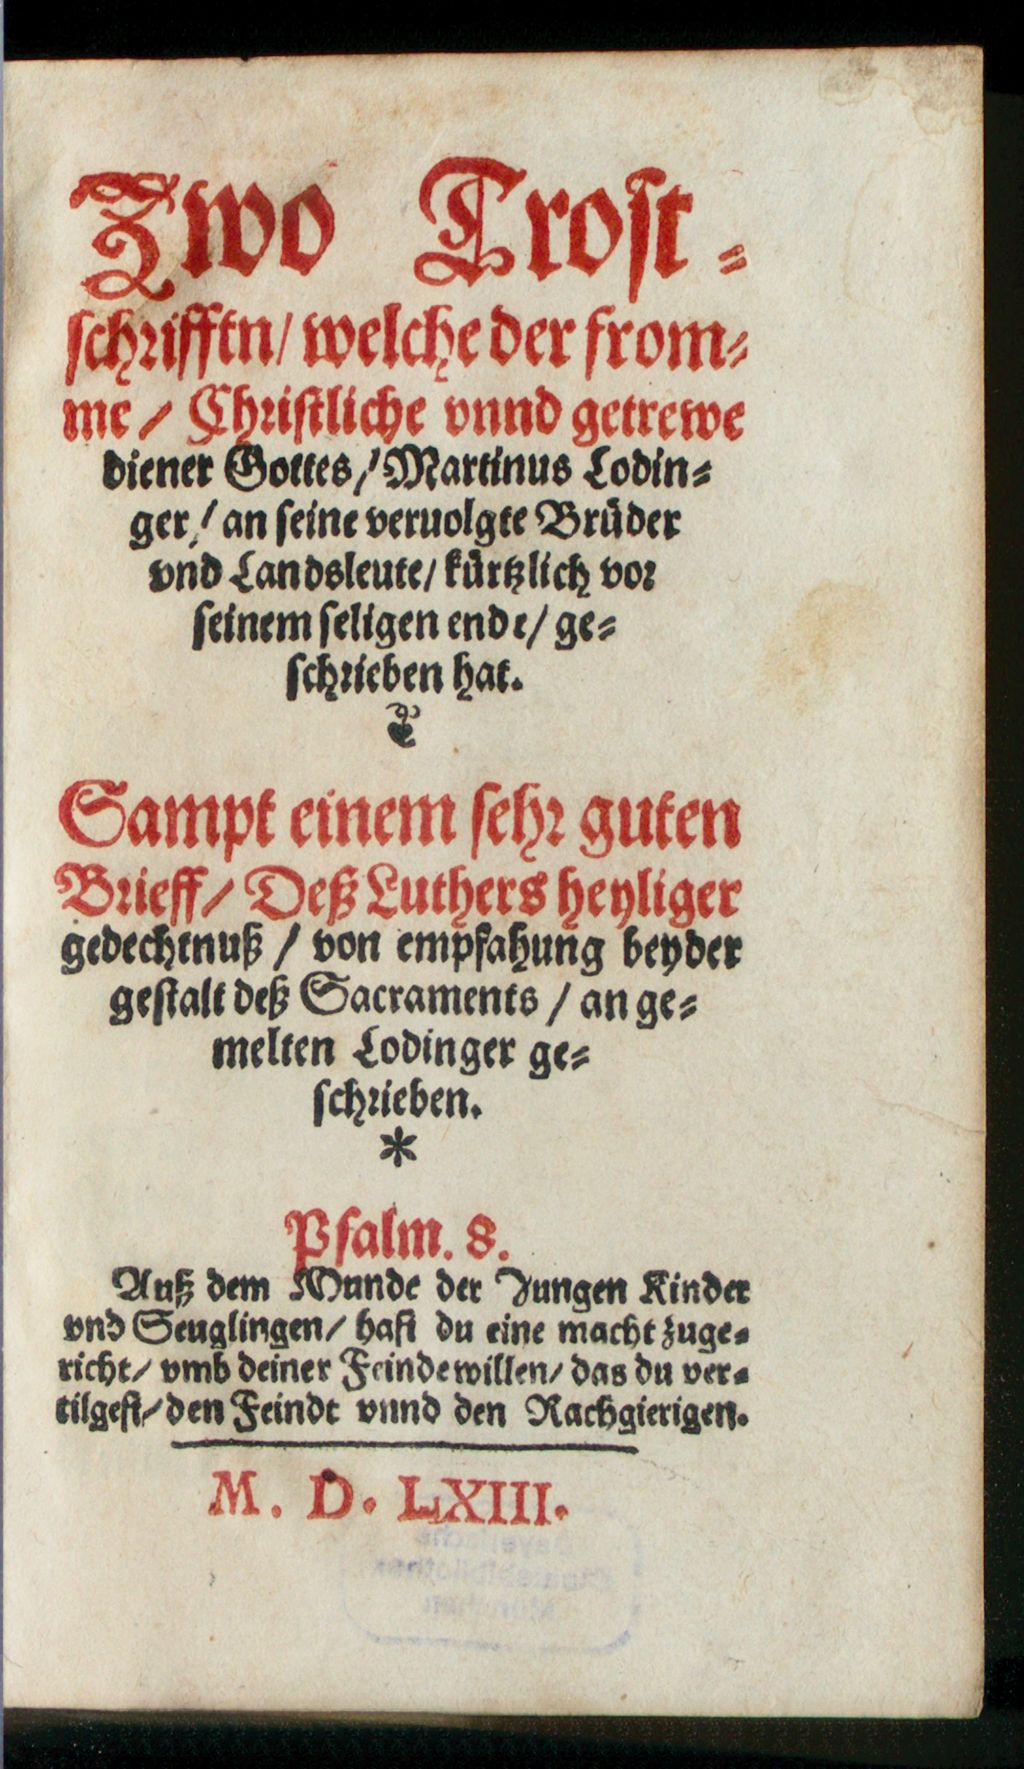 Zwo Trost-
schrifftn/ welche der from-
me/ Christliche vnnd getrewe
diener Gottes/ Martinus Lodin-
ger/ an seine veruolgte Brüder
vnd Landsleute/ kürtzlich vor
seinem seligen ende/ ge-
schrieben hat.
Sampt einem sehr guten
Brieff/ Deß Luthers heyliger
gedechtnuß/ von empfahung beyder
gestalt deß Sacraments/ an ge-
melten Lodinger ge-
schrieben.
*
Psalm. 8.
Auß dem Munde der Jungen Kinder
vnd Seuglingen/ hast du eine macht zuge-
richt/ vmb deiner Feinde willen/ das du ver-
tilgest/ den Feindt vnnd den Nachgierigen.
M. D. LXIII.
Bayerische
Staatsbibliothek
München